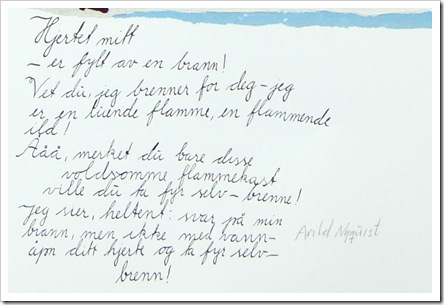 Hjertet mitt
– er fylt av en brann!
Vet du, jeg brenner for deg – jeg
er en luende flamme, en flammende
ild!
Ååå, merket du bare disse
voldsomme, flammekast
ville du ta fyr selv – brenne!
Jeg sier, heltent: svar på min
brann, men ikke med vann –
åpn ditt hjerte og ta fyr selv –
brenn!
Arild Nyquist